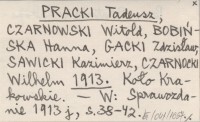 PRACKI Tadeusz,
CZARNOWSKI Witold, BOBIŃ-
SKA Hanna, GACKI Zdzisław,
SAWICKI Kazimierz, CZARNOCKI
Wilhelm 1913. Koło Kra-
kowskie. — W: Sprawozda-
nie 1913 j, s. 38-42.